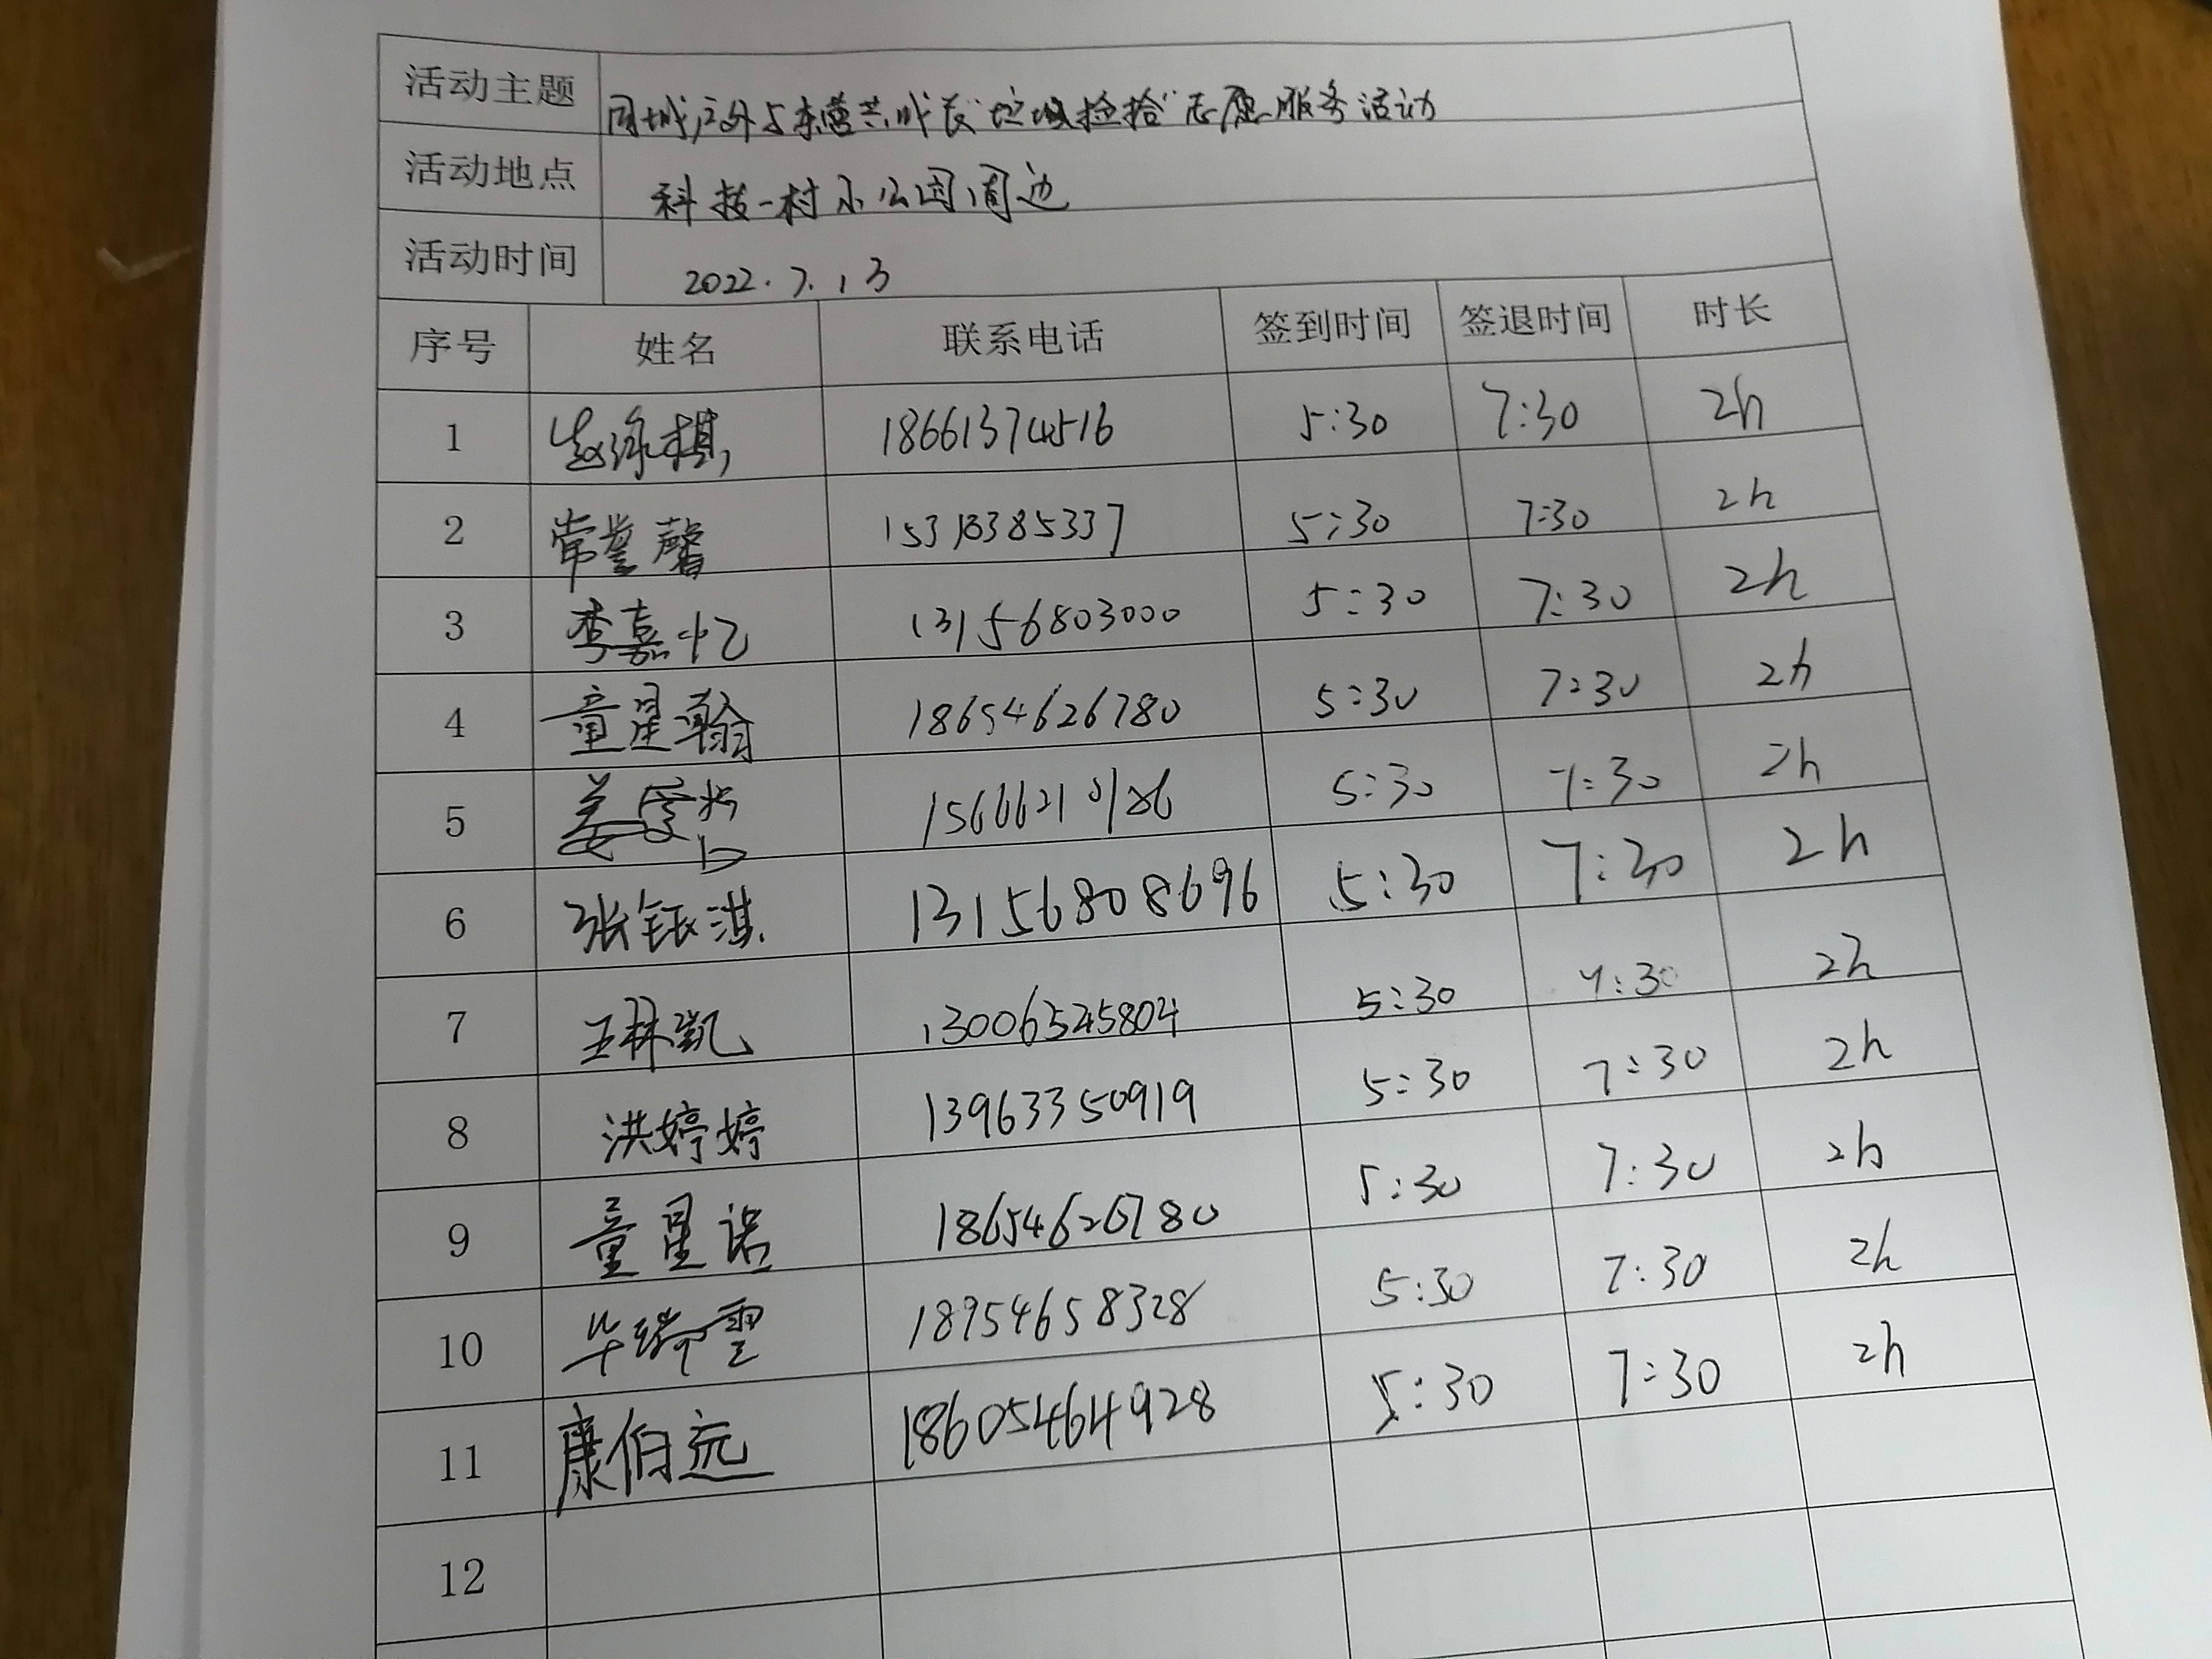 活动主题 同城户外与东营共成长"垃圾捡拾"志愿服务活动
活动地点 科技一村小公园周边
活动时间 2022.7.13
序号 姓名 联系电话 签到时间 签退时间 时长
1 赵泳棋 18661374516 5:30 7:30 2h
2 常誉馨 15318385337 5:30 7:30 2h
3 李嘉忆 13156803000 5:30 7:30 2h
4 童星翰 18654626780 5:30 7:30 2h
5 姜 15666210186 5:30 7:30 2h
6 张钰淇 13156808696 5:30 7:30 2h
7 王林凯 13006525804 5:30 7:30 2h
8 洪婷婷 13963350919 5:30 7:30 2h
9 童星诺 18654626780 5:30 7:30 2h
10 毕瑞雪 18954658328 5:30 7:30 2h
11 康伯远 18605464928 5:30 7:30 2h
12